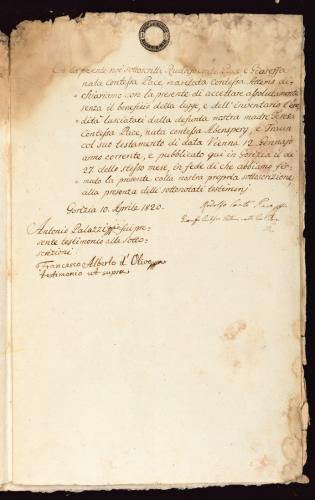 Con la presente noi sottoscritti Rudolfo Conte Pace, e Giuseffa
nata Contessa Pace maritata Contessa Attems di-
chiariamo con la presente di accettare assolutamente
senza il beneficio della legge, e dell'inventario l'ere-
dità lasciataci dalla defunta nostra madre Teresa
Contessa Pace, nata contessa Abensperg, e Traun
col suo testamento di data Vienna 12. Gennajo
anno corrente, e pubblicato qui in Gorizia li dì
27. dello stesso mese, in fede di che abbiamo fir-
mato la presente colla nostra propria sottoscrizione
alla presenza delli sottonotati testimonj
Gorizia 10. Aprile 1820.
Rodolfo Conte Pace
Antonio Palazzi fui pre-
sente testimonio alle sotto-
scrizioni
Francesco Alberto d'Oliva
testimonio ut supra